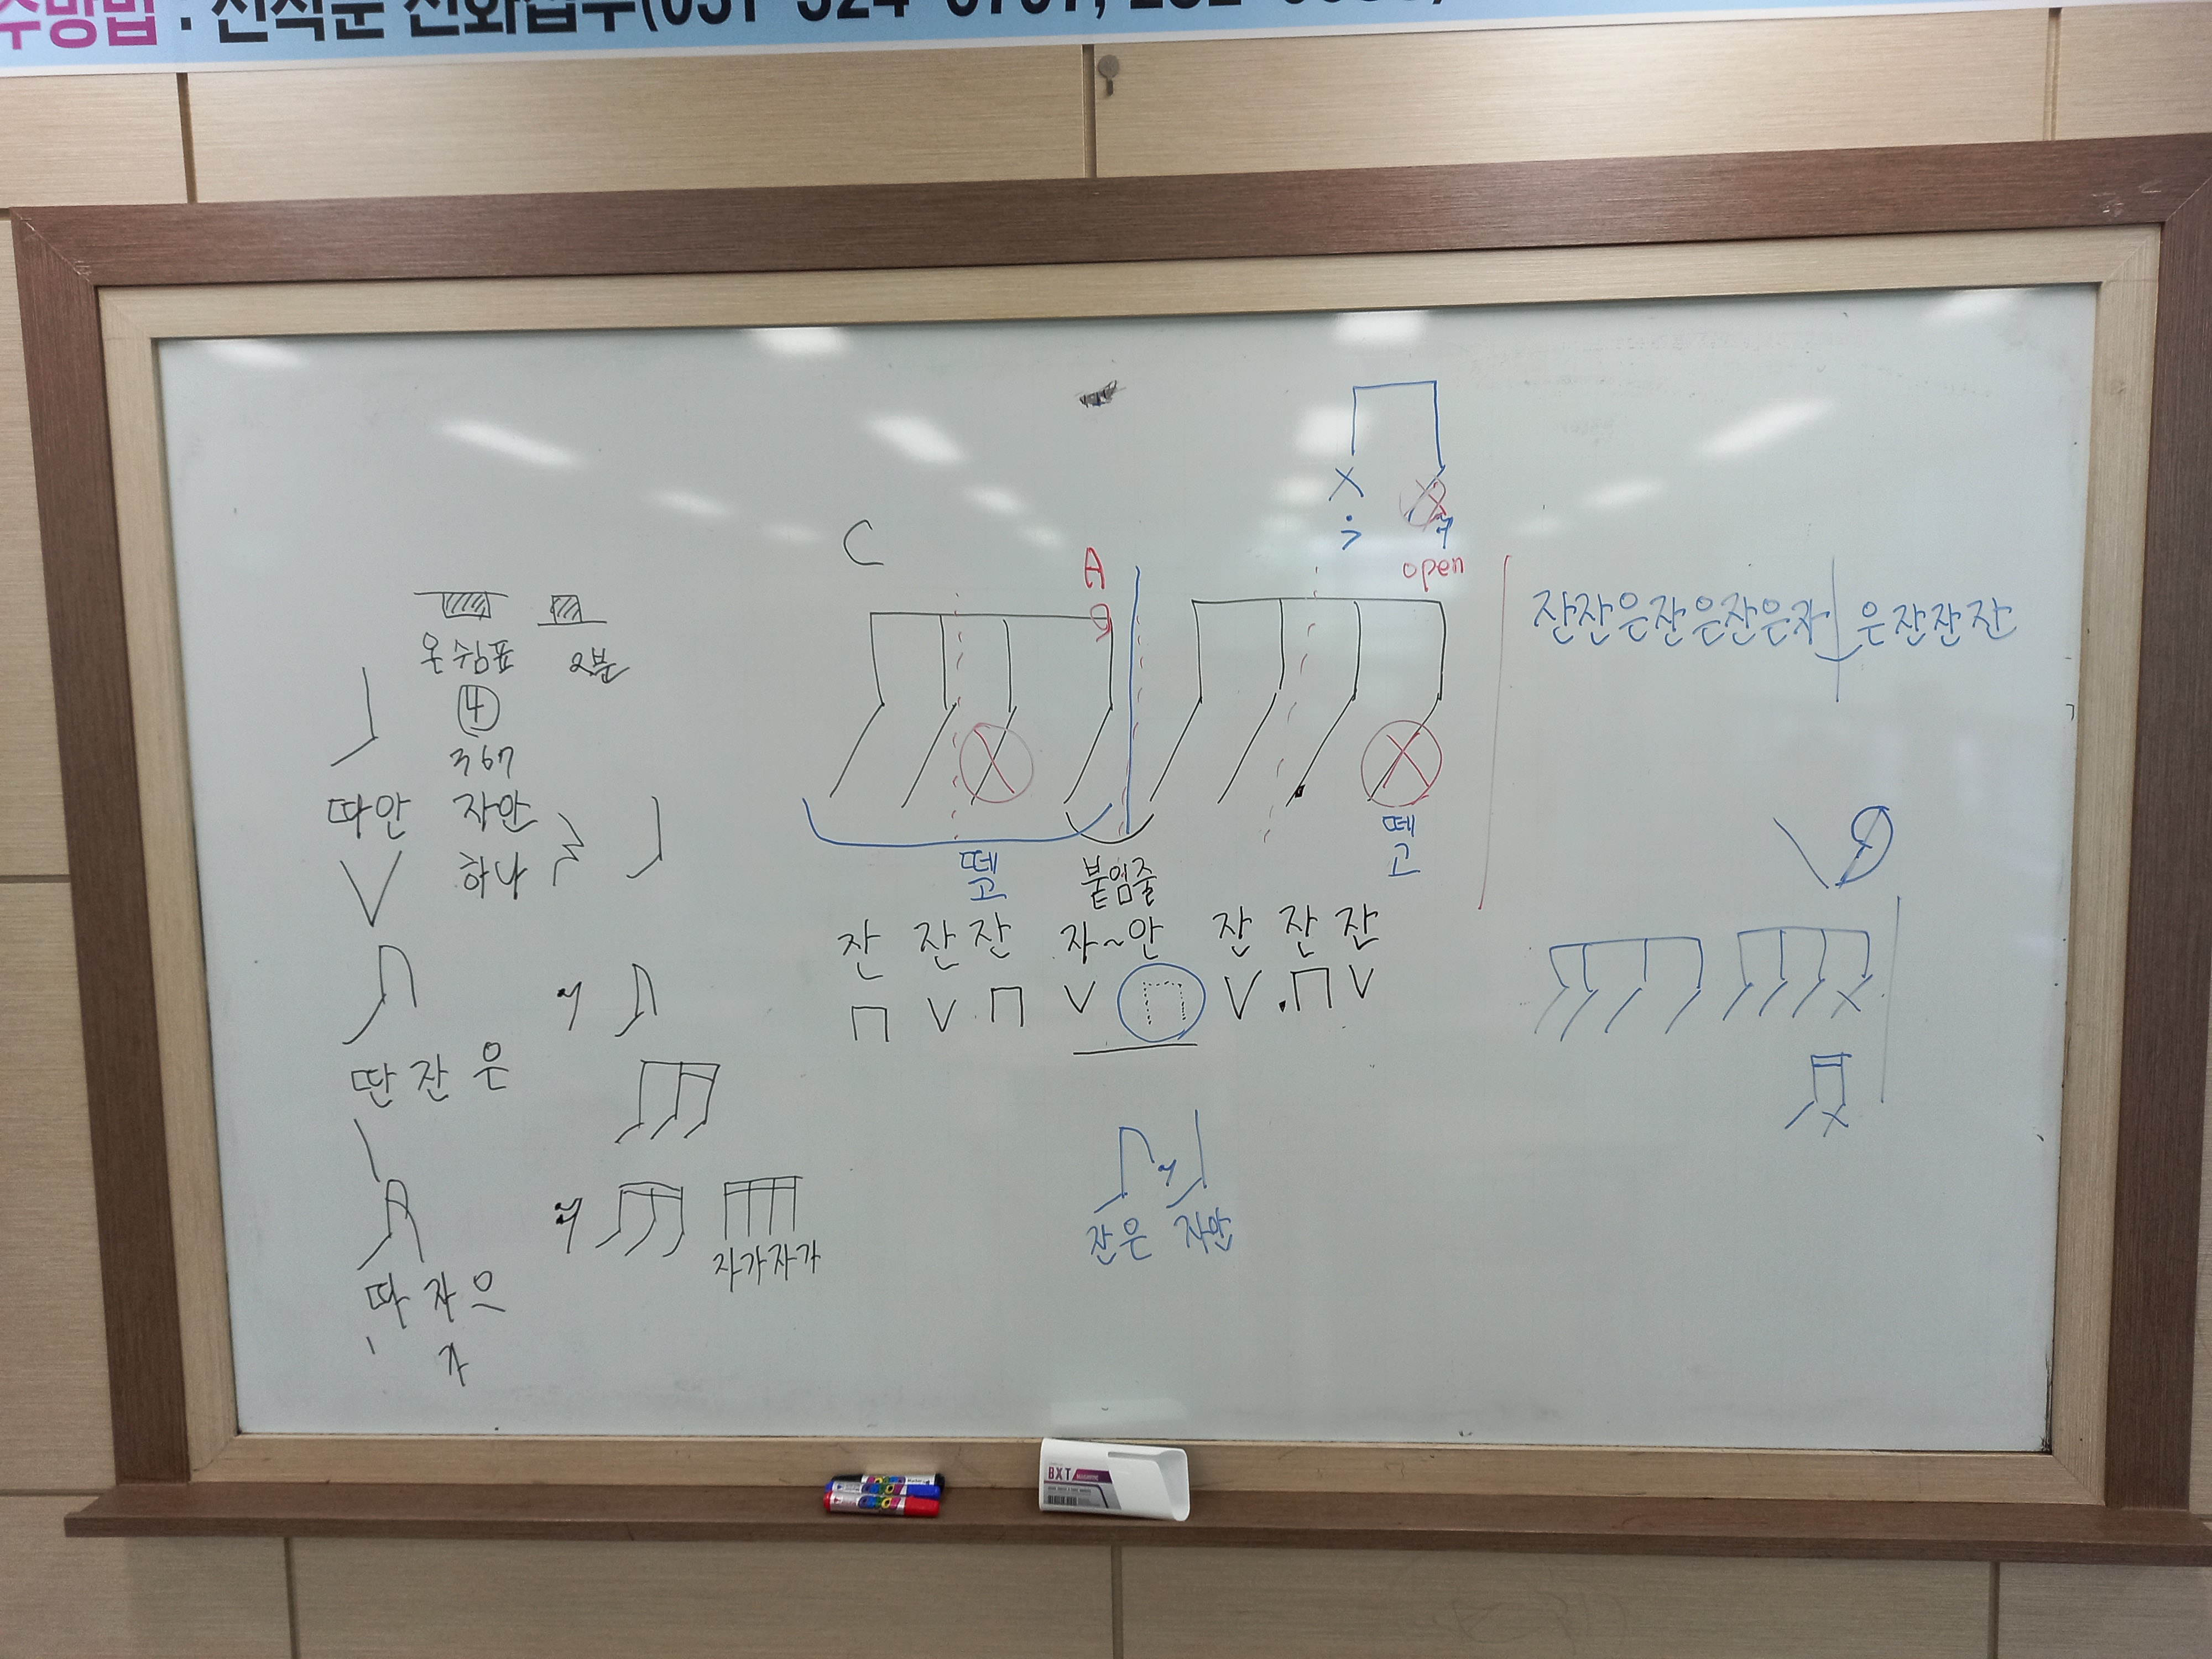 C
A
open
온쉼표
2분
4
367
따안 자안
하나
떼고
붙임줄
떼고
잔 잔 잔 자~안 잔 잔 잔
딴 잔 은
따 자 으
가
자가자가
잔은 자안
잔잔은잔은잔은자 은잔잔잔
BXT